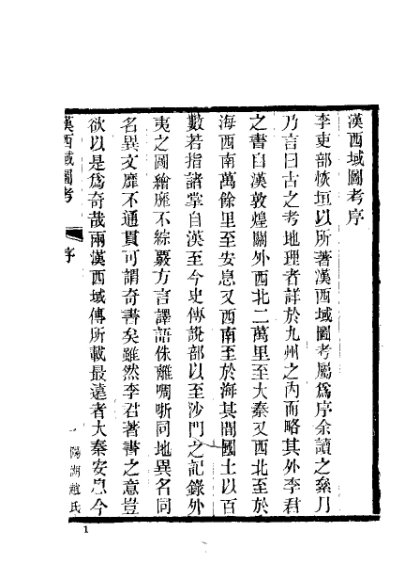 漢西域圖考序
李吏部恢垣以所著漢西域圖考屬爲序余讀之絫月
乃言曰古之考地理者詳於九州之內而略其外李君
之書自漢敦煌關外西北二萬里至大秦又西北至於
海西南萬餘里至安息又西南至於海其閒國土以百
數若指諸掌自漢至今史傳說部以至沙門之記錄外
夷之圖繪靡不綜覈方言譯語侏離啁哳同地異名同
名異文靡不通貫可謂奇書矣雖然李君著書之意豈
欲以是爲奇哉兩漢西域傳所載最遠者大秦安息今
漢西域圖考
序
一
陽湖趙氏
1